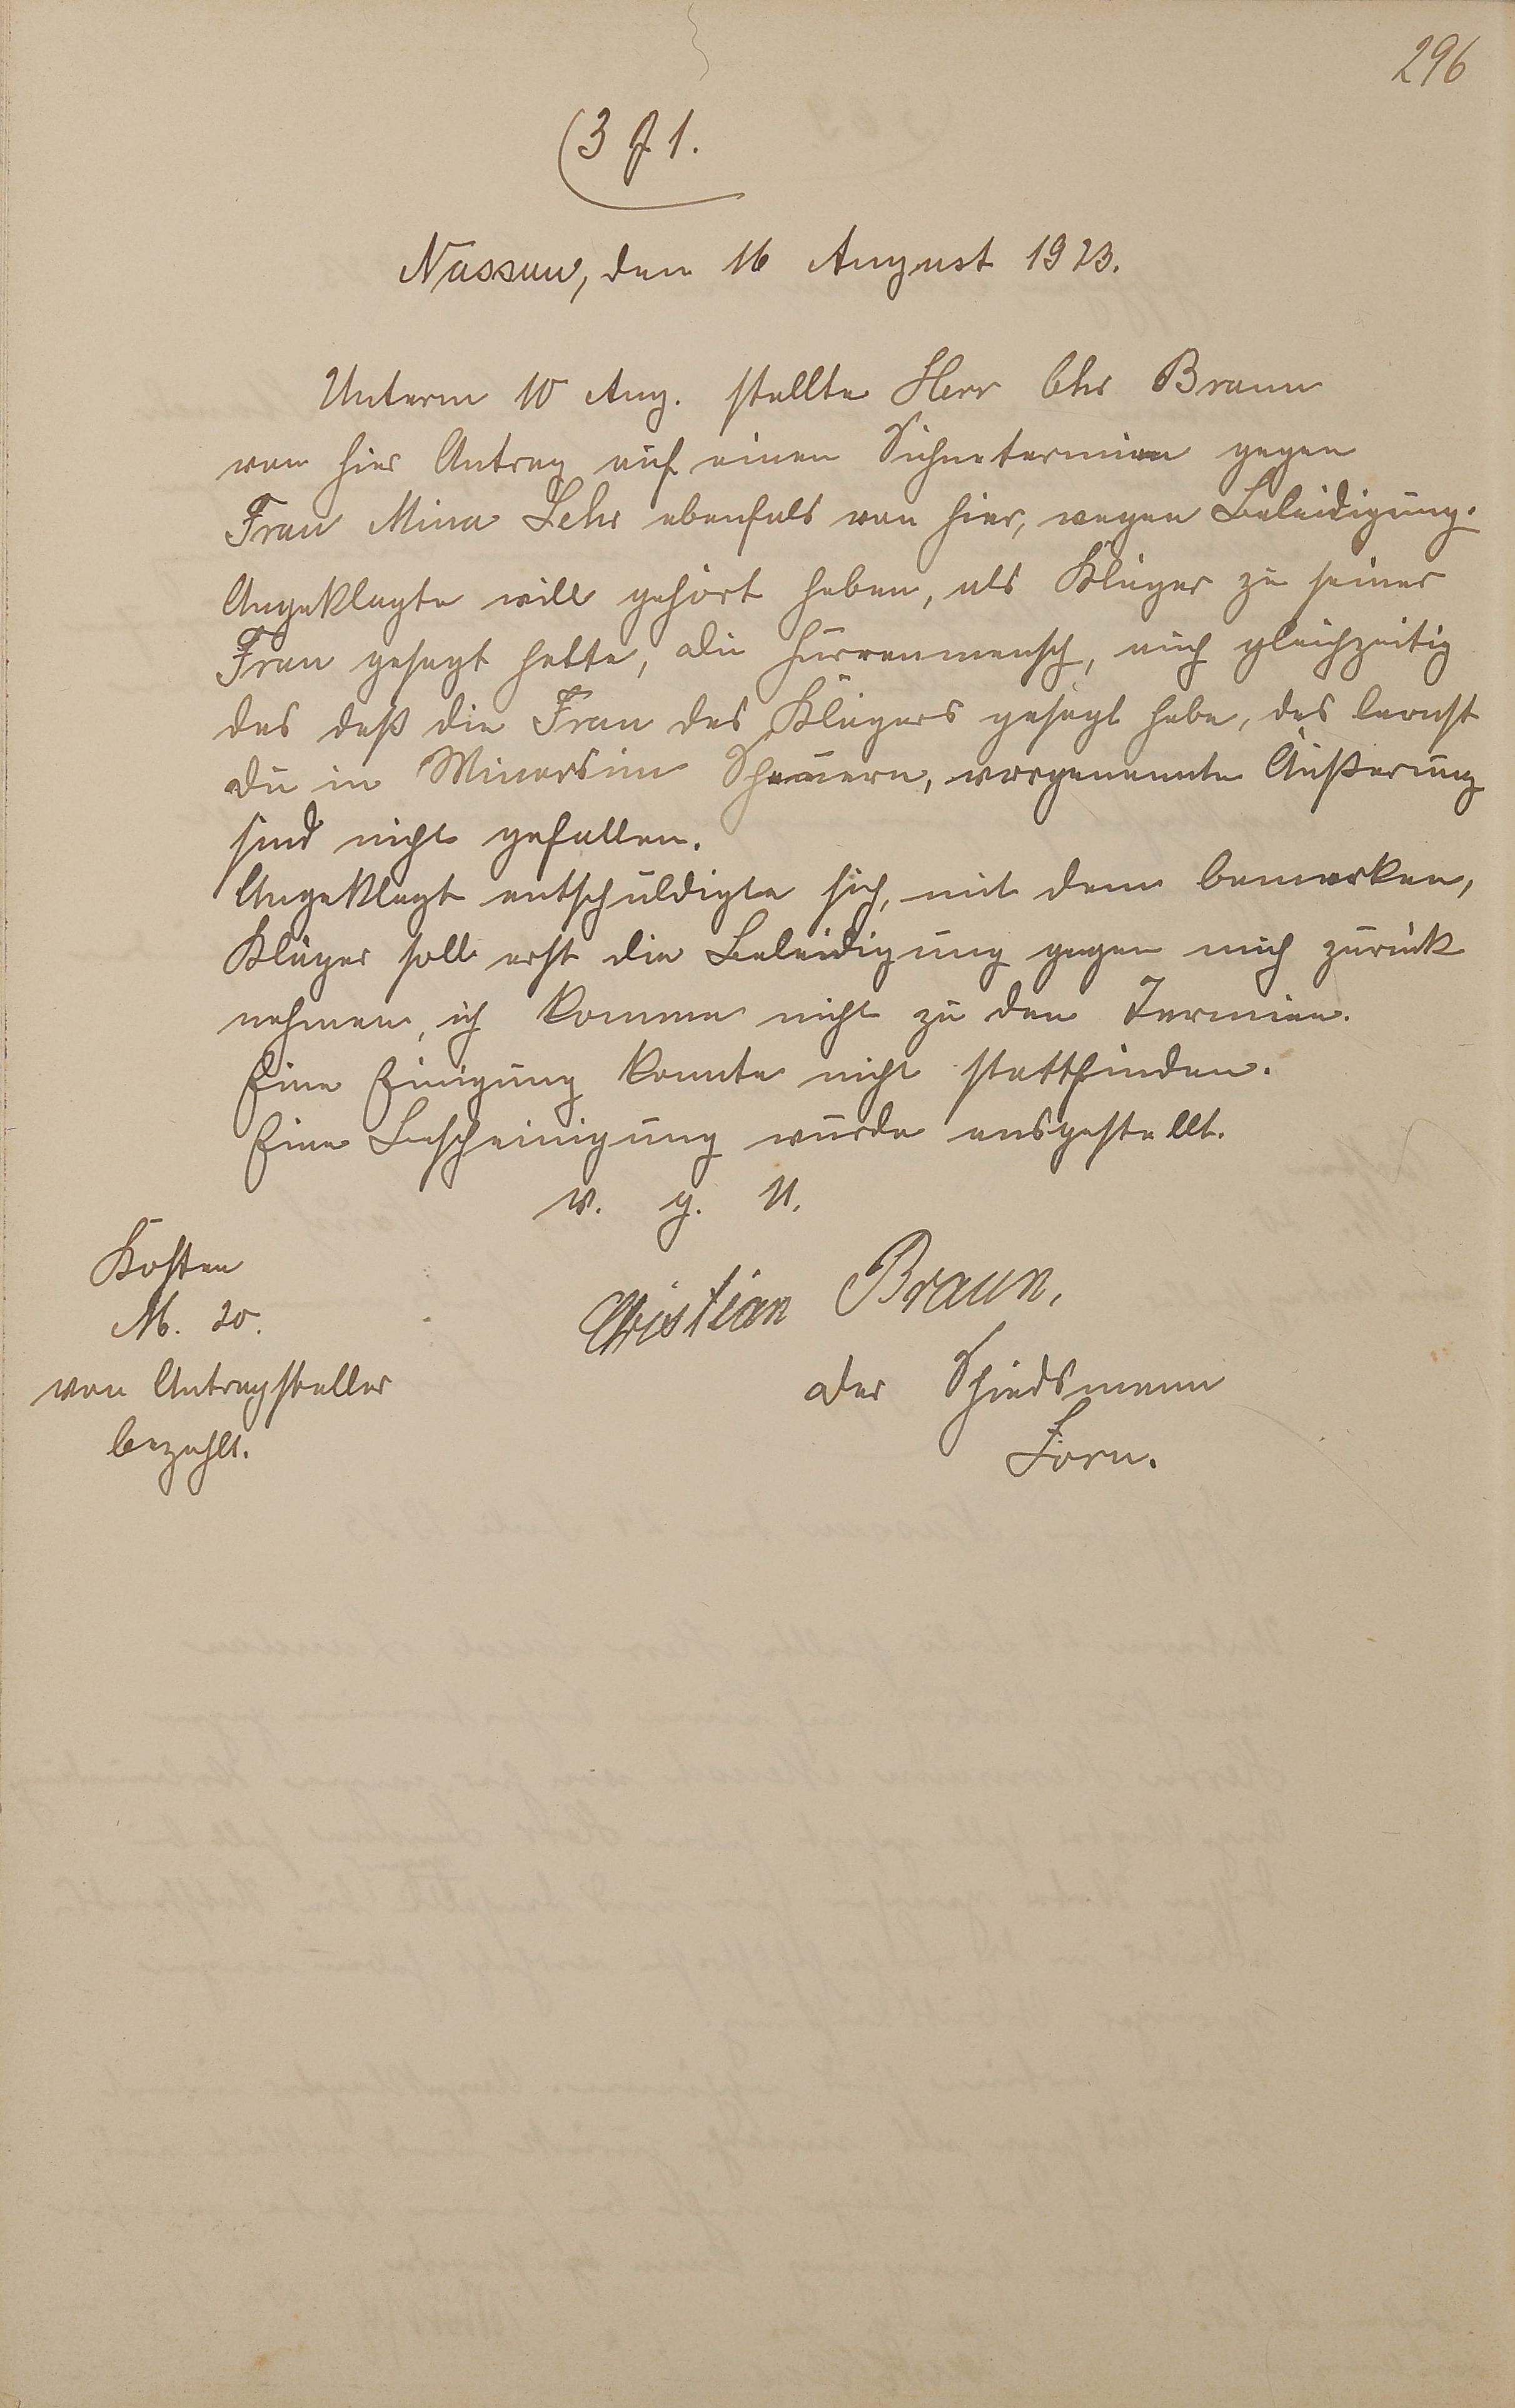 296
(3 J 1.
Nassau, den 16 August 1923.
Unterm 10 Aug. stellte Herr Chr Braun
von hier Antrag auf einen Sühnetermien gegen
Frau Mina Lehr ebenfals von hier, wegen Beleidigung.
Angeklagte will gehört haben, als Kläger zu seiner
Frau gesagt hatte, du Hurrenmensch, auch gleichzeitig
das daß die Frau des Klägers gesagt habe, das lernst
du in Scheuern, vorgenannte Äußerung
sind nicht gefallen.
Angeklagt entschuldigte sich, mit dem bemerken,
Kläger soll erst die Beleidigung gegen mich zurück
nehmen, ich komme nicht zu den Termien.
Eine Einigung konnte nicht stattfinden.
Eine Bescheinigung wurde ausgestellt.
v. g. U.
Kosten
M. 20.
von Antragsteller
bezahlt.
Christian Braun.
Der Schiedsmann
Forn.